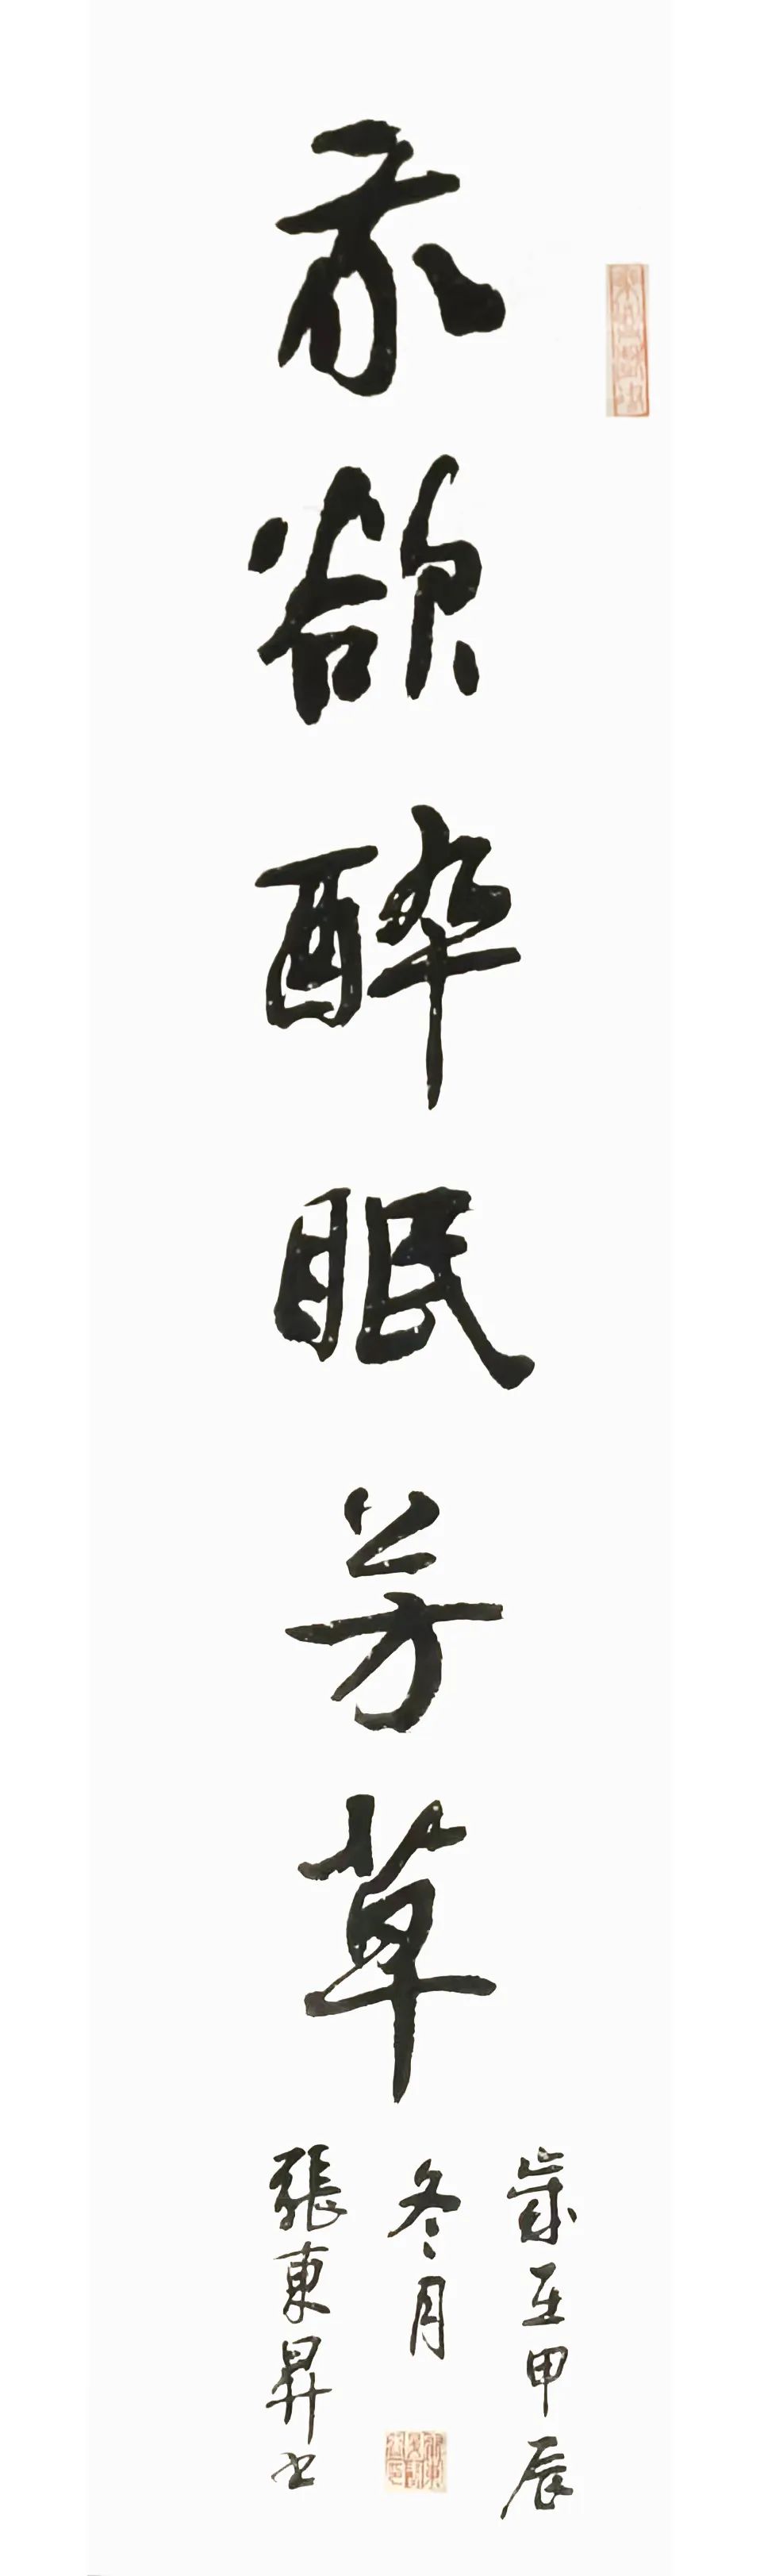 我欲醉眠芳草
歲在甲辰
冬月
張東昇书